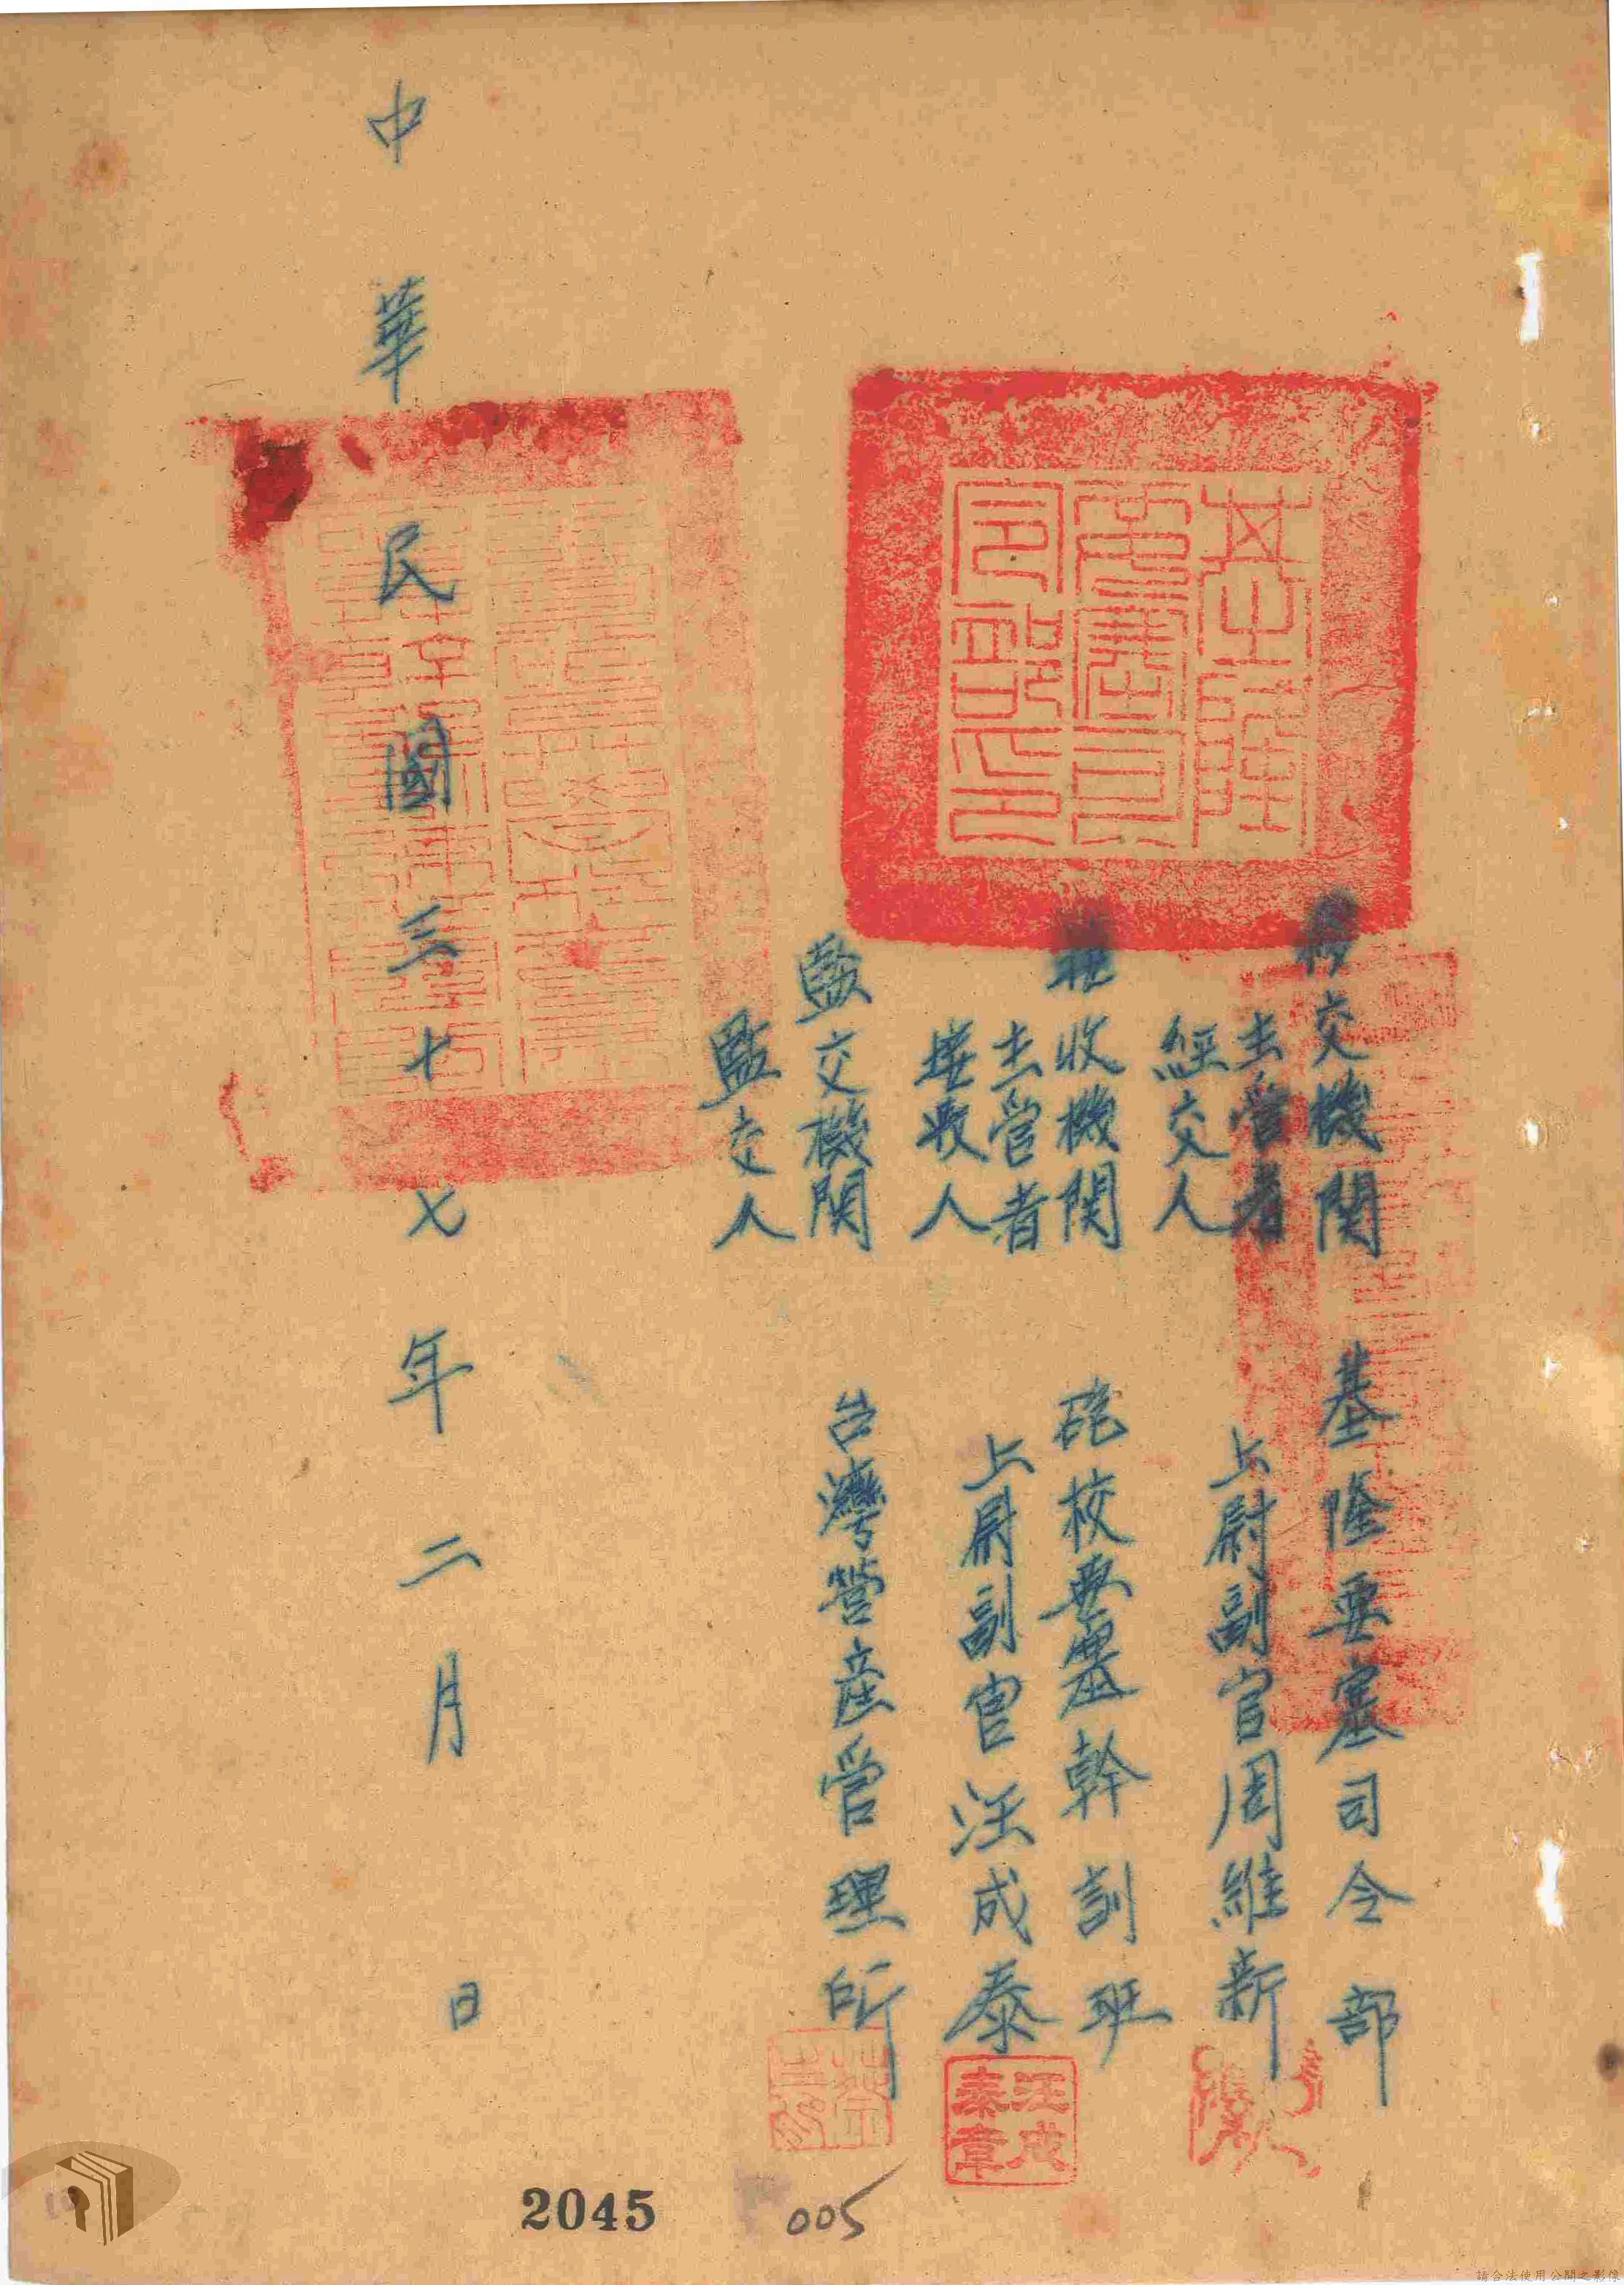 移交機関 基隆要塞司令部
主管者
經交人 上尉副官周維新
接收機関 砲校要塞幹訓班
主管者
接收人 上尉副官汪成泰
汪成泰章
監交機関 台灣營産管理所
監交人
中華民國三十七年二月 日
基隆要塞司令部之印
2045
005
請合法使用公開之影像